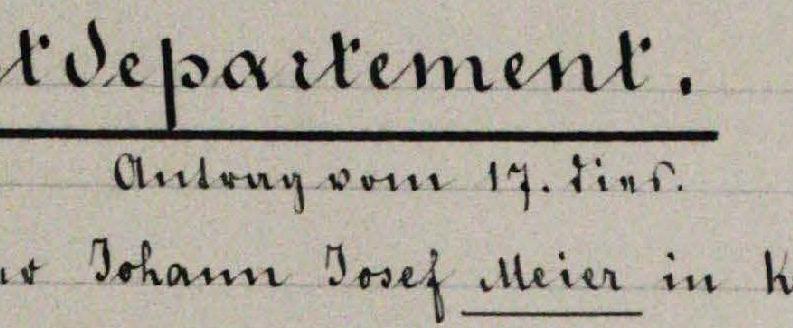 tdepartement.
Antrag vom 17. dies.
Johann Josef Meier in K